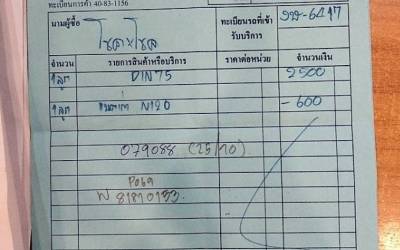 ทะเบียนการค้า 40-83-1156
นามผู้ซื้อ โชคชัยโชค ทะเบียนรถที่เข้ารับบริการ 6417
จำนวน รายการสินค้าหรือบริการ ราคาต่อหน่วย จำนวนเงิน
1 ลูก DIN75 2500
1 ลูก N120 - 600
079088 (25/10)
W 81810133